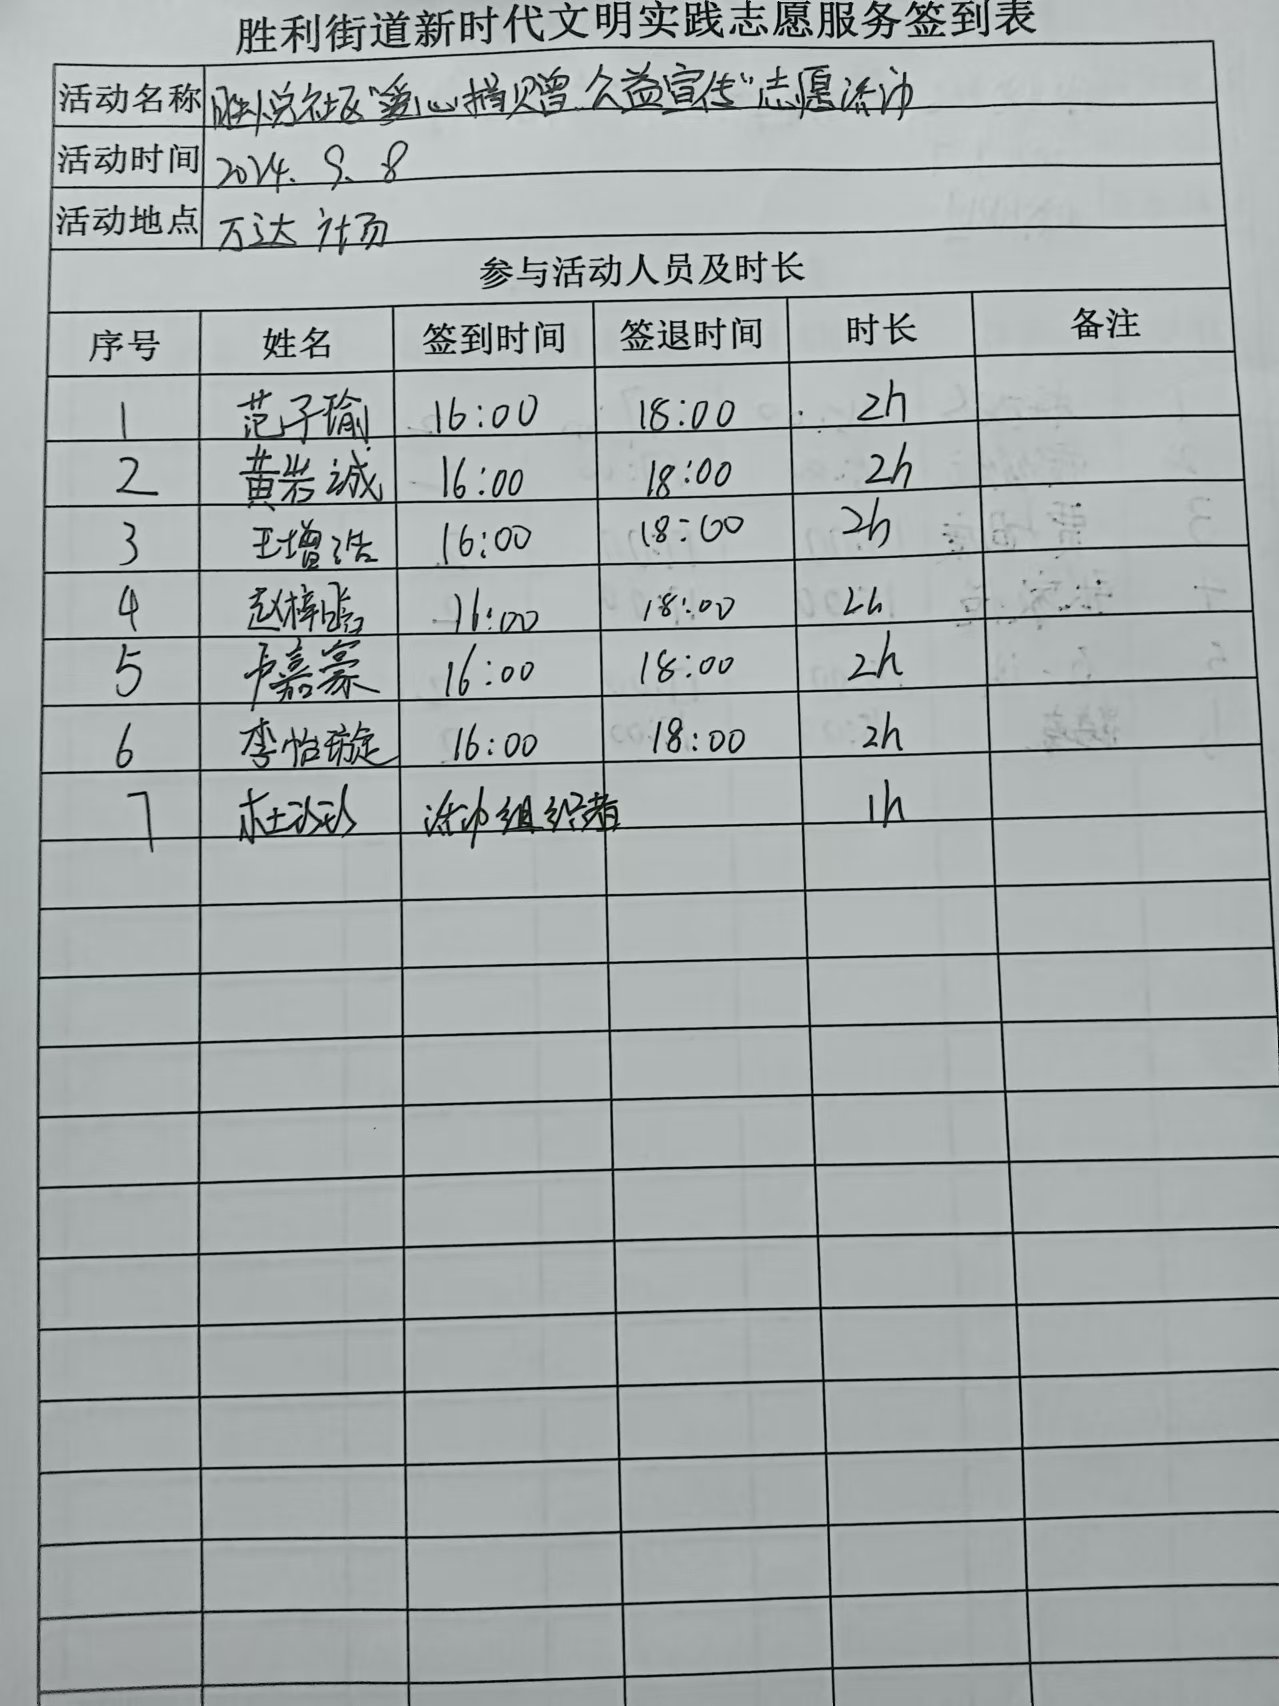 胜利街道新时代文明实践志愿服务签到表
活动名称 胜利社区"爱心捐赠 公益宣传"志愿活动
活动时间 2024. 9. 8
活动地点 万达
参与活动人员及时长
序号 姓名 签到时间 签退时间 时长 备注
1 范子瑜 16:00 18:00 2h
2 黄岩诚 16:00 18:00 2h
3 王增浩 16:00 18:00 2h
4 赵梓晗 16:00 18:00 2h
5 卢嘉豪 16:00 18:00 2h
6 李怡璇 16:00 18:00 2h
7 活动组织者 1h